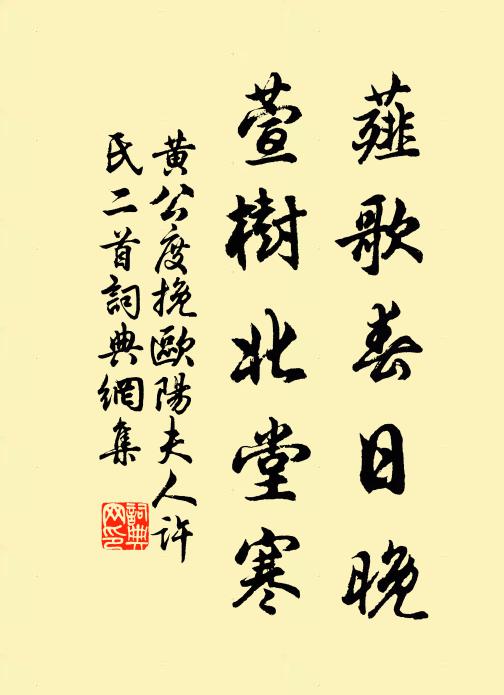 薤歌春日晚
萱樹北堂寒
黄公度挽歐陽夫人許
氏二首詞典網集
詞典
网印